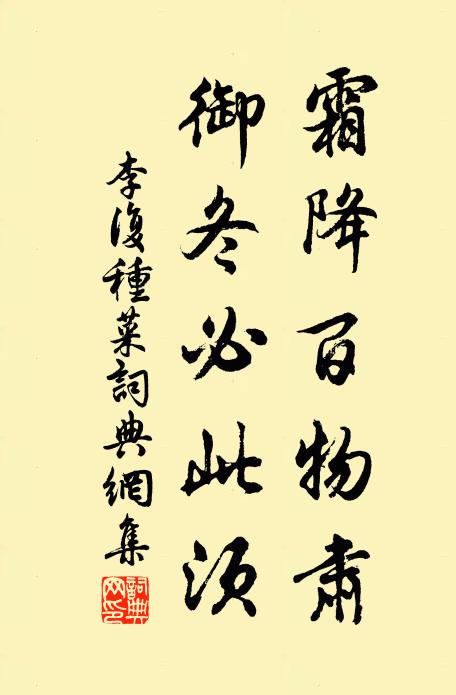 霜降百物肅
御冬必此須
李復種菜詞典網集
詞典网印